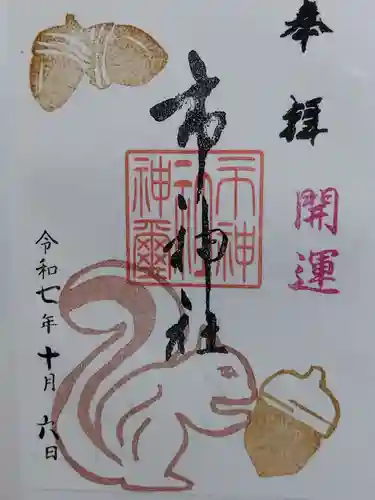 奉拝
開運
市神社
市神
神社
神璽
令和七年十月六日